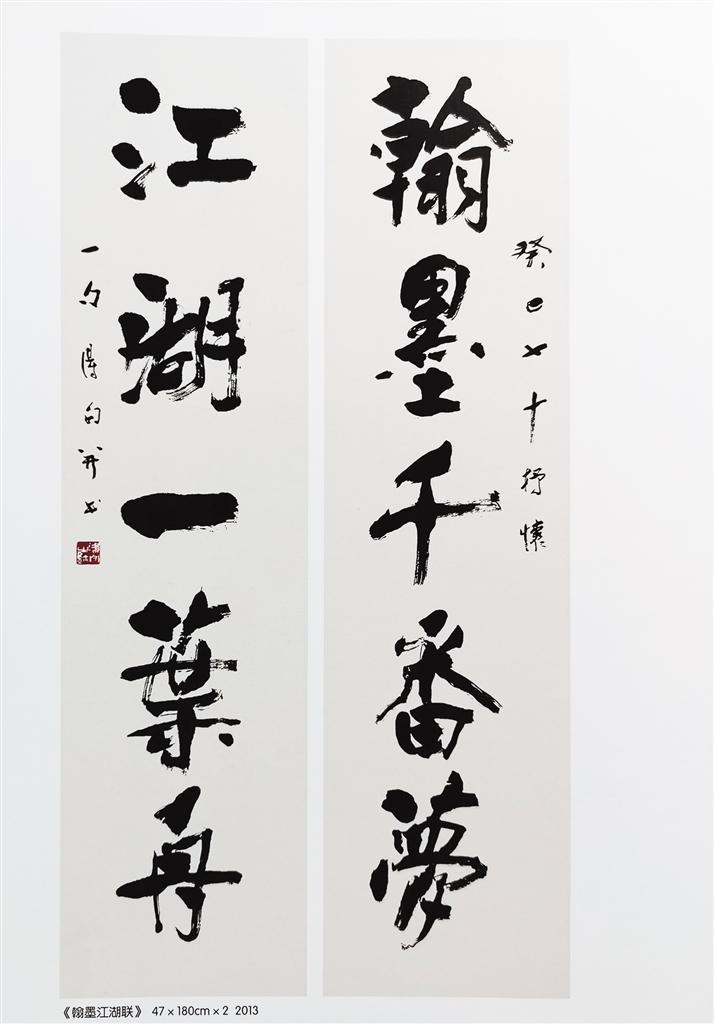 癸巳七十抒懷
翰墨千番夢
江湖一葉舟
一 得句并书
《翰墨江湖联》 47×180cm×2 2013